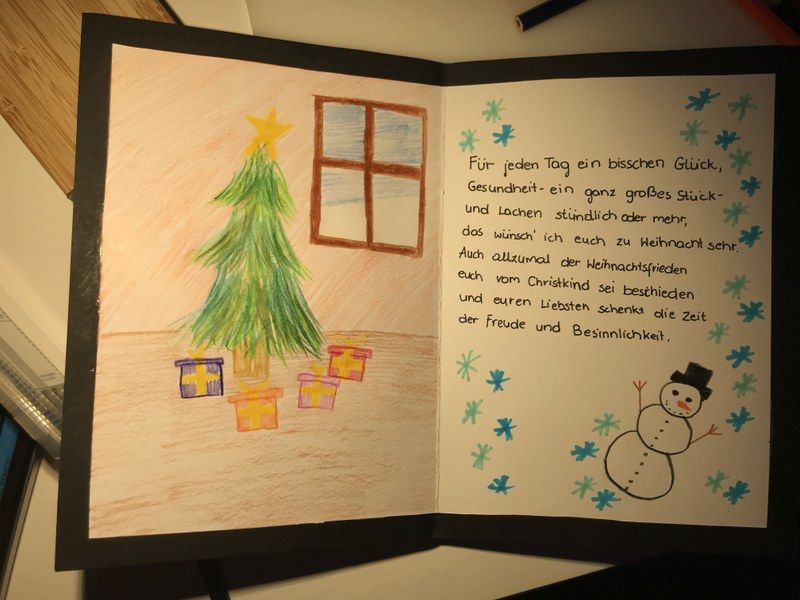 Für jeden Tag ein bisschen Glück,
Gesundheit - ein ganz großes Stück -
und Lachen stündlich oder mehr,
das wünsch' ich euch zu Weihnacht sehr.
Auch allzumal der Weihnachtsfrieden
euch vom Christkind sei beschieden
und euren Liebsten schenkt die Zeit
der Freude und Besinnlichkeit.